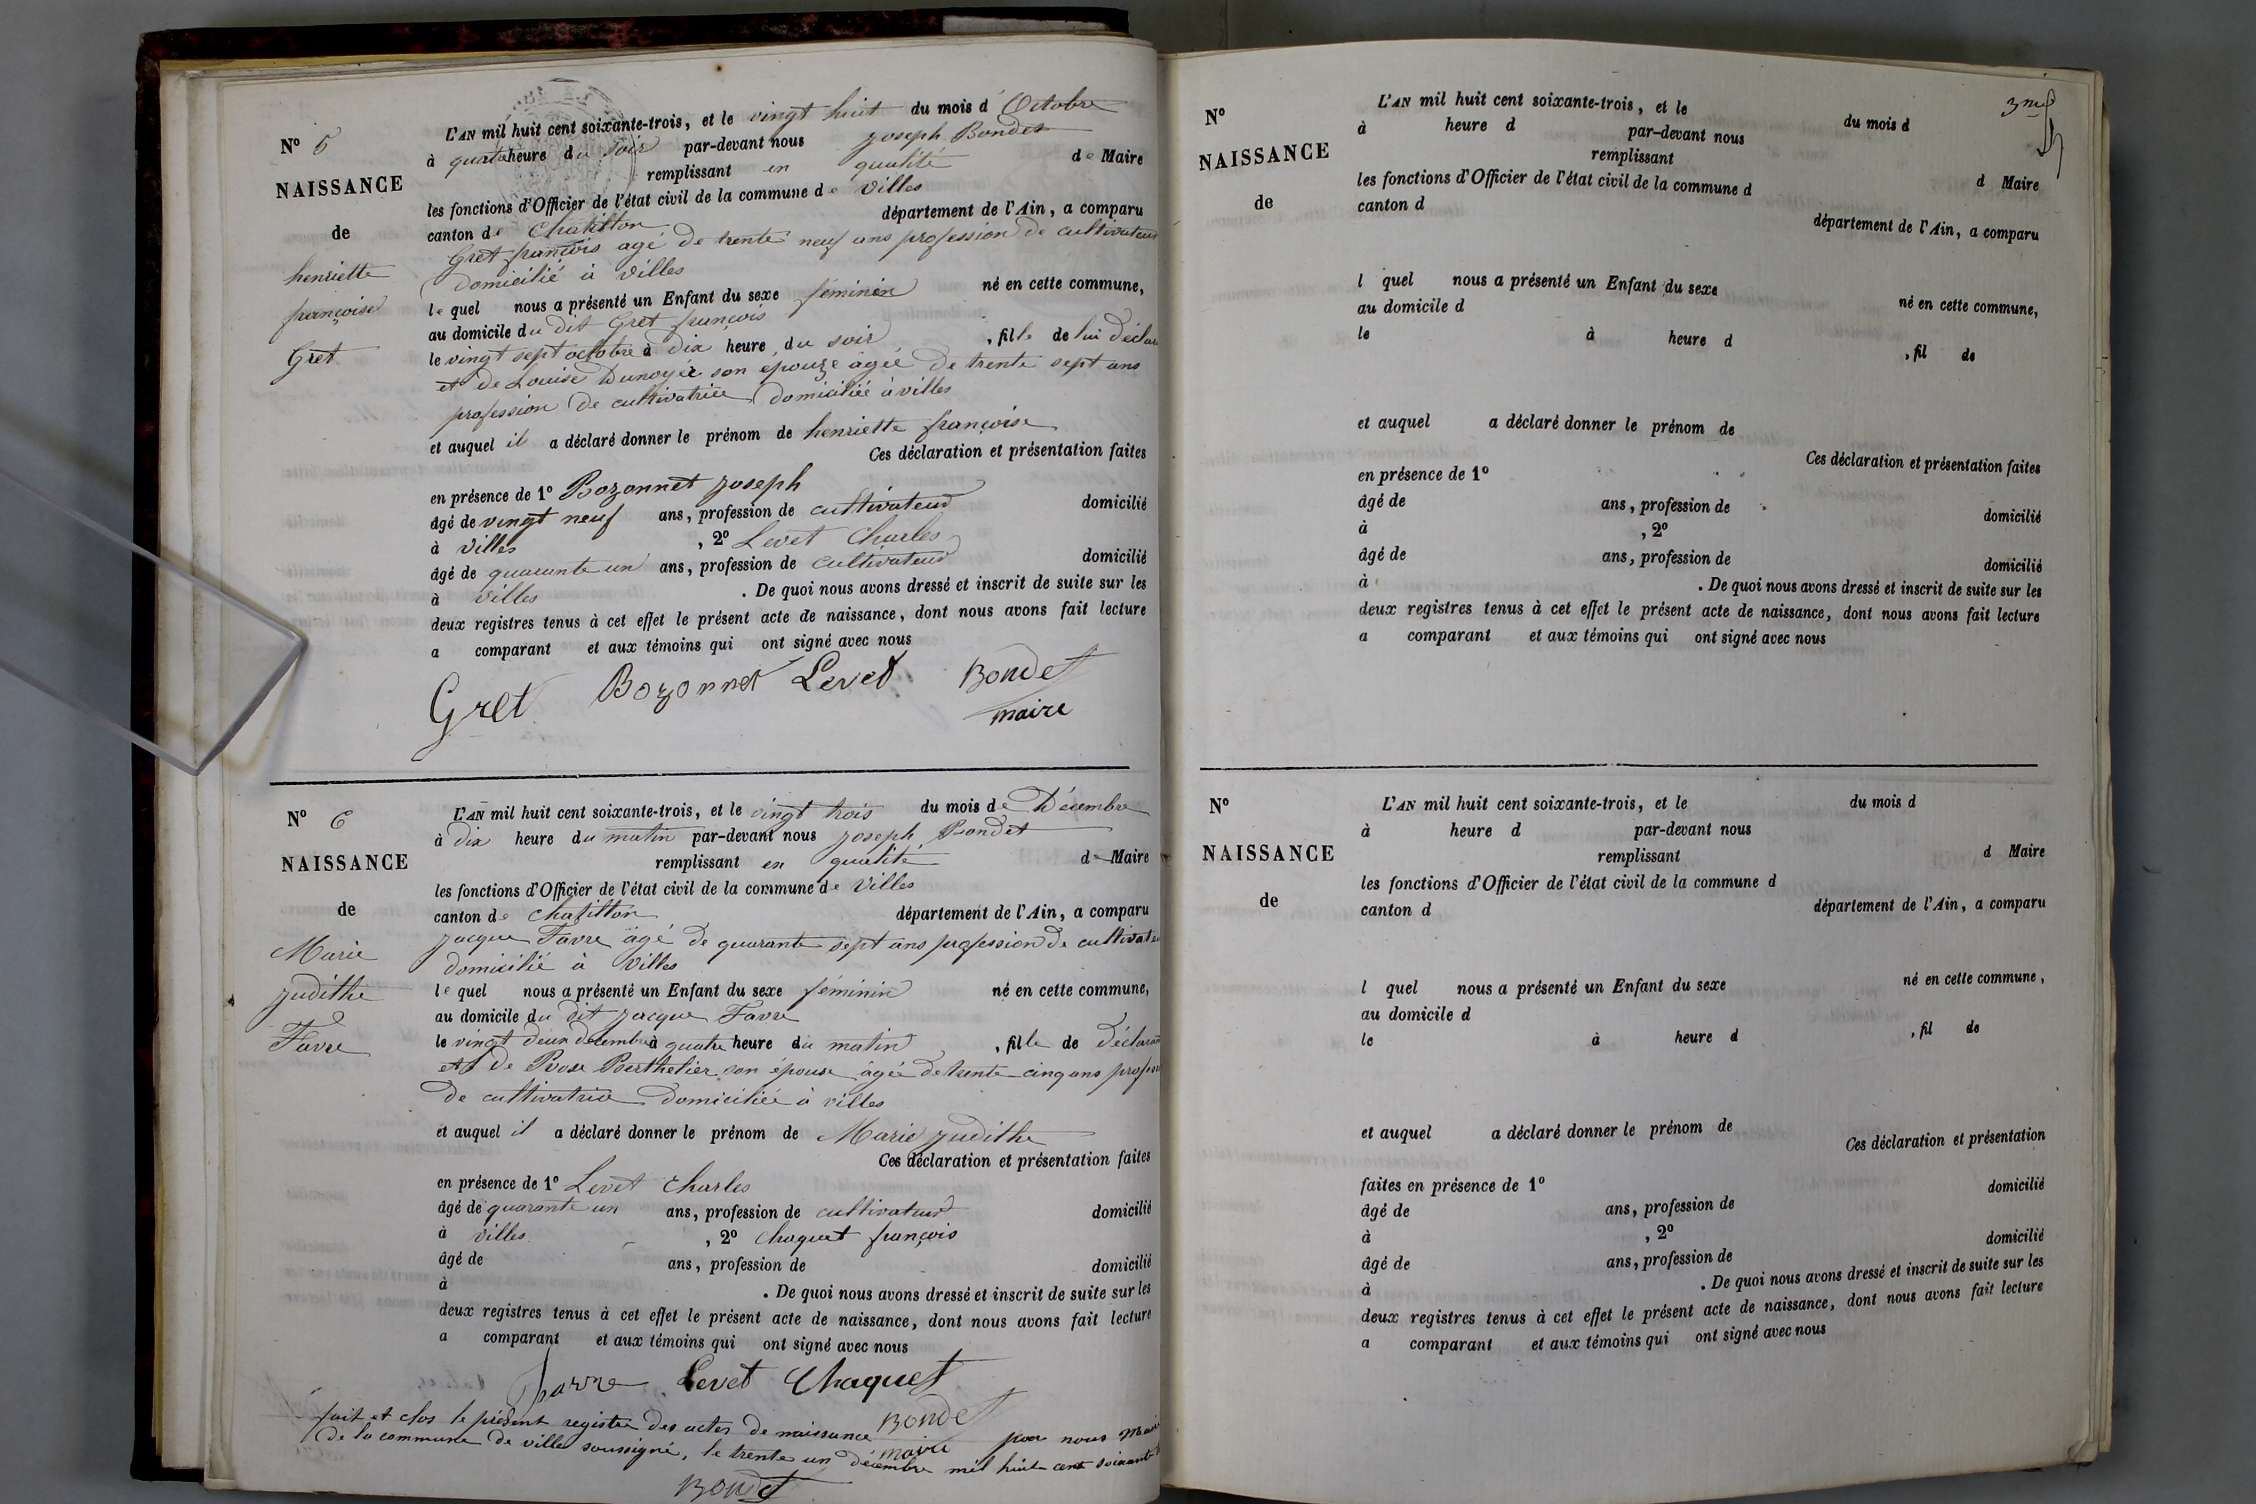 Nº 5
NAISSANCE
de
henriette
françoise
Gret
L'AN mil huit cent soixante-trois, et le vingt huit du mois d' Octobre
à quatre heure du soir par-devant nous joseph Bondet
remplissant en qualité de Maire
les fonctions d'Officier de l'état civil de la commune de Villes
canton de Chatillon département de l'Ain, a comparu
Gret françois agé de trente neuf ans profession de cultivateur
domicilié à villes
le quel nous a présenté un Enfant du sexe féminin né en cette commune,
au domicile du dit Gret françois
le vingt sept octobre à dix heure du soir , fille de lui décla
et de Louise Dunoyér son épouze agée de trente sept ans
profession de cultivatrice domiciliée à villes
et auquel il a déclaré donner le prénom de henriette françoise
Ces déclaration et présentation faites
en présence de 1º Bozonnet joseph
âgé de vingt neuf ans, profession de cultivateur domicilié
à villes , 2º Levet Charles
âgé de quarante un ans, profession de cultivateur domicilié
à villes . De quoi nous avons dressé et inscrit de suite sur les
deux registres tenus à cet effet le présent acte de naissance, dont nous avons fait lecture
a comparant et aux témoins qui ont signé avec nous
Gret Bozonnet Levet Bondet
maire
Nº 6
NAISSANCE
de
Marie
judithe
Favre
L'AN mil huit cent soixante-trois, et le vingt trois du mois de Décembre
à dix heure du matin par-devant nous joseph Bondet
remplissant en qualité de Maire
les fonctions d'Officier de l'état civil de la commune de Villes
canton de chatillon département de l'Ain, a comparu
jacque Favre âgé de quarante sept ans profession de cultivate
domicilié à villes
le quel nous a présenté un Enfant du sexe féminin né en cette commune,
au domicile du dit jacque Favre
le vingt deux décembre à quatre heure du matin , fille de déclaran
et de Rose Berthelier son épouse âgée de trente cinq ans profes
de cultivatrice domiciliée à villes
et auquel il a déclaré donner le prénom de Marie judithe
Ces déclaration et présentation faites
en présence de 1º Levet Charles
âgé de quarante un ans, profession de cultivateur domicilié
à villes , 2º Chaquet françois
âgé de ans, profession de domicilié
à . De quoi nous avons dressé et inscrit de suite sur les
deux registres tenus à cet effet le présent acte de naissance, dont nous avons fait lecture
a comparant et aux témoins qui ont signé avec nous
Levet Chaquet
Bondet
maire
fait et clos le présent registre des actes de naissance par nous Mair
de la commune de villes soussigné, le trente un décembre mil huit cent soixante
Bondet
3me
Nº
NAISSANCE
de
L'AN mil huit cent soixante-trois, et le du mois d
à heure d par-devant nous
remplissant d Maire
les fonctions d'Officier de l'état civil de la commune d
canton d département de l'Ain, a comparu
l quel nous a présenté un Enfant du sexe né en cette commune,
au domicile d
le à heure d , fil de
et auquel a déclaré donner le prénom de
Ces déclaration et présentation faites
en présence de 1º
âgé de ans, profession de domicilié
à , 2º
âgé de ans, profession de domicilié
à . De quoi nous avons dressé et inscrit de suite sur les
deux registres tenus à cet effet le présent acte de naissance, dont nous avons fait lecture
a comparant et aux témoins qui ont signé avec nous
Nº
NAISSANCE
de
L'AN mil huit cent soixante-trois, et le du mois d
à heure d par-devant nous
remplissant d Maire
les fonctions d'Officier de l'état civil de la commune d
canton d département de l'Ain, a comparu
l quel nous a présenté un Enfant du sexe né en cette commune,
au domicile d
le à heure d , fil de
et auquel a déclaré donner le prénom de
Ces déclaration et présentation
faites en présence de 1º domicilié
âgé de ans, profession de
à , 2º domicilié
âgé de ans, profession de
à . De quoi nous avons dressé et inscrit de suite sur les
deux registres tenus à cet effet le présent acte de naissance, dont nous avons fait lecture
a comparant et aux témoins qui ont signé avec nous